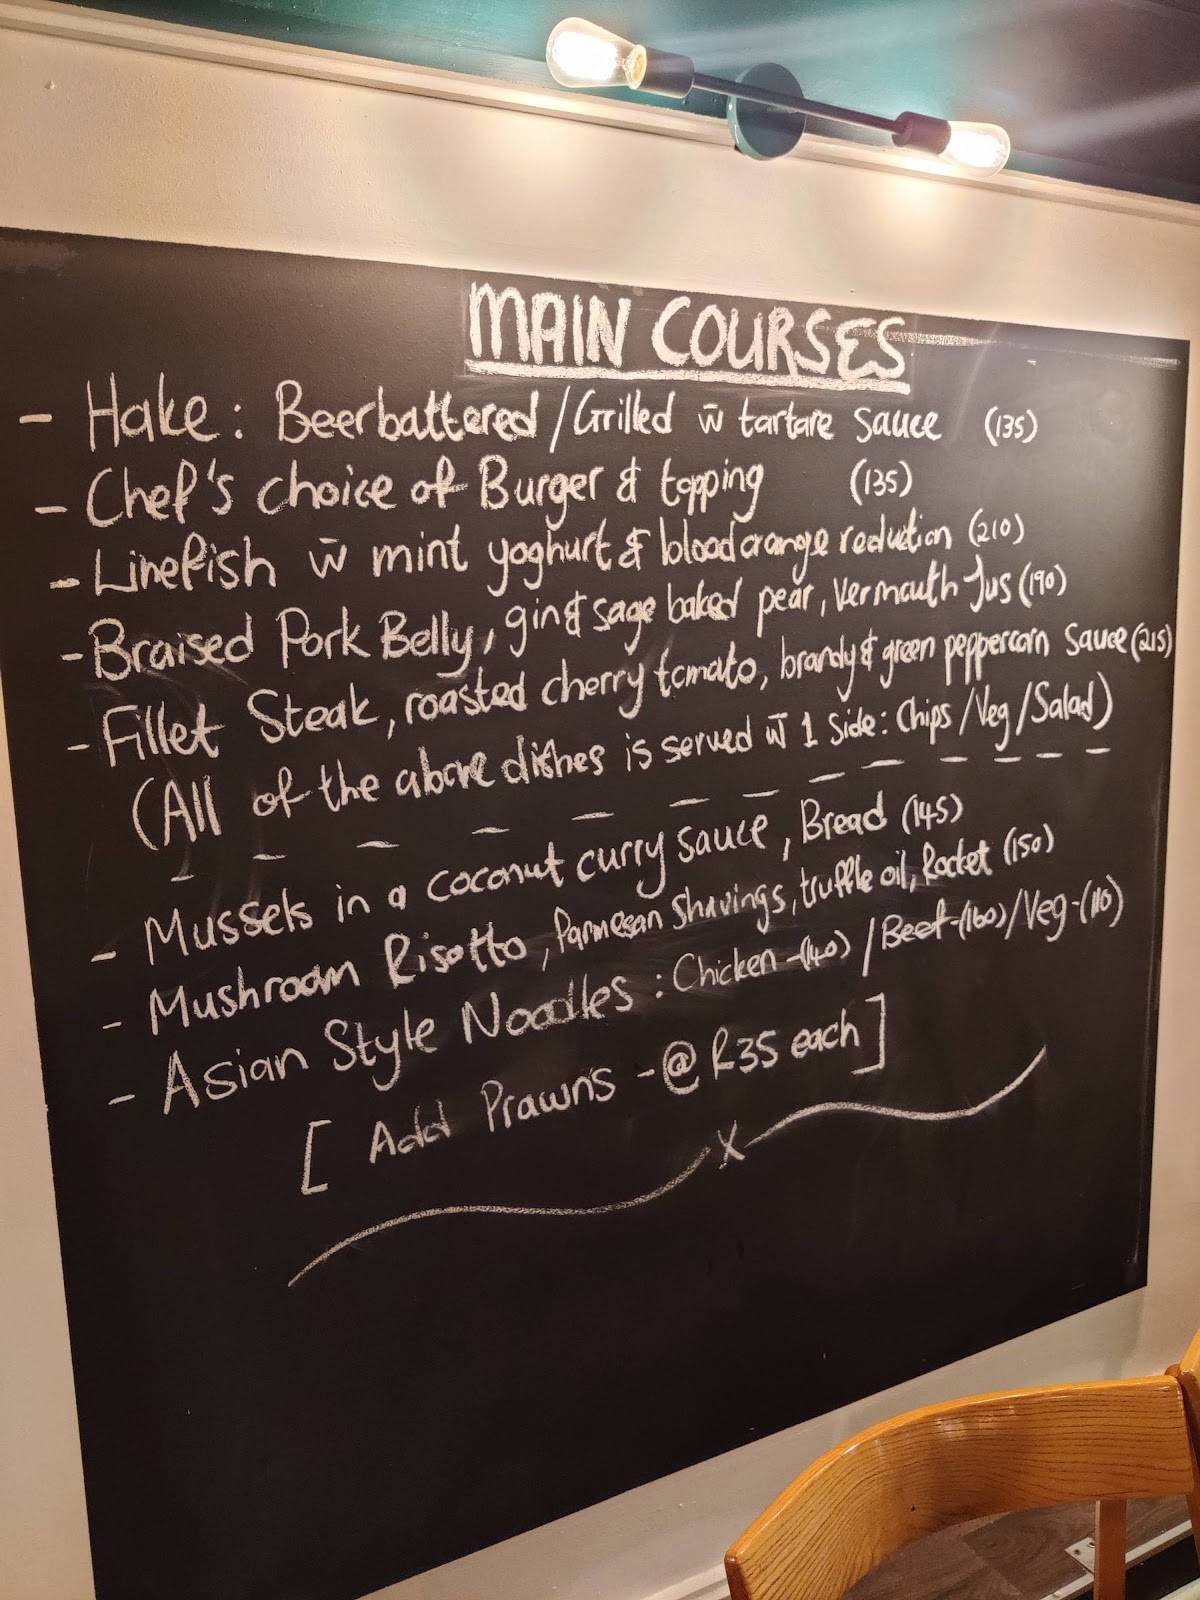 MAIN COURSES
- Hake: Beerbattered/Grilled w̄ tartare sauce (135)
- Chef's choice of Burger & topping (135)
- Linefish w̄ mint yoghurt & blood orange reduction (210)
- Braised Pork Belly, gin & sage baked pear, Vermouth Jus (190)
- Fillet Steak, roasted cherry tomato, brandy & green peppercorn Sauce (215)
(All of the above dishes is served w̄ 1 Side: Chips/Veg/Salad)
- Mussels in a coconut curry sauce, Bread (145)
- Mushroom Risotto, Parmesan Shavings, truffle oil, Rocket (150)
- Asian Style Noodles: Chicken-(140)/Beef-(160)/Veg-(110)
[Add Prawns -@ R35 each]
X